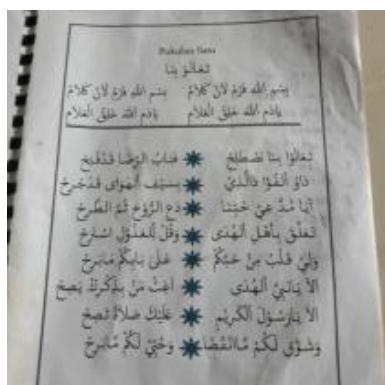 Pukulan Satu
تَعَالَوْا بِنَا
بِسْمِ اللهِ فَرُمْ لَانْ كَلَامْ بِسْمِ اللهِ فَرُمْ لَانْ كَلَامْ
يَادَمْ اللهْ خَلِقْ الْعَلَامْ يَادَمْ اللهْ خَلِقْ الْعَلَامْ
تَعَالَوْا بِنَا نَصْطَلِحْ فَبَابُ الرِّضَا قَدْ فُتِحْ
دَاوُ بِسَيْفِ الْهَوَى قَدْ جُرِحْ
أَيَا مُدَّعِيْ حُبِّنَا دَعِ الرُّوْحَ ثُمَّ الطَّرِحْ
تَعَلَّقْ بِأَهْلِ الْهُدَى وَقُلْ لِلْعَذُوْلِ اسْتَرِحْ
وَلِيْ قَلْبُ مِنْ حُبِّكُمْ عَلَى بَابِكُمْ مَابَرِحْ
اَلَا يَانَبِيَّ الْهُدَى اَغِثْ مَنْ بِذِكْرِكَ يَصِحْ
اَلَا يَارَسُوْلَ الْكَرِيْمْ عَلَيْكَ صَلَاةٌ تَصِحْ
وَشَوْقِ لَكُمْ مَاانْقَضَا وَحُبِّيْ لَكُمْ مَابَرِحْ